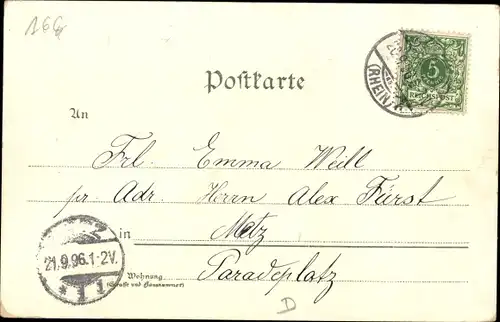 166
Postkarte
(RHEIN)
5
REICHSPOST
An
Frl. Emma Weill
pr Adr. Herrn Alex Fürst
in Metz
21.9.96.1-2V.
Paradeplatz
Wohnung
(Straße und Hausnummer)
* 1 1
D